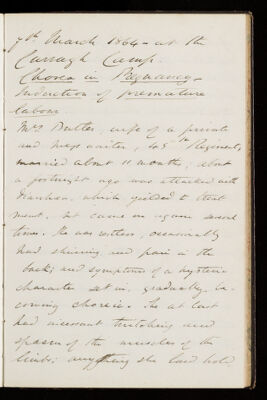 7th March 1864 - at the
Curragh Camp.
Chorea in Pregnancy -
Induction of premature
labour.
Mrs Butler, wife of a private
and mess waiter, 45th Regiment,
married about 11 months, about
a fortnight ago was attacked with
diarrhoea, which yielded to treat
ment, but came on again several
times. She was restless, occasionally
had shivering and pain in the
back; and symptoms of a hysteric
character set in, gradually be-
coming choreic. She at last
had incessant twitching and
spasm of the muscles of the
limbs; anything she laid hold